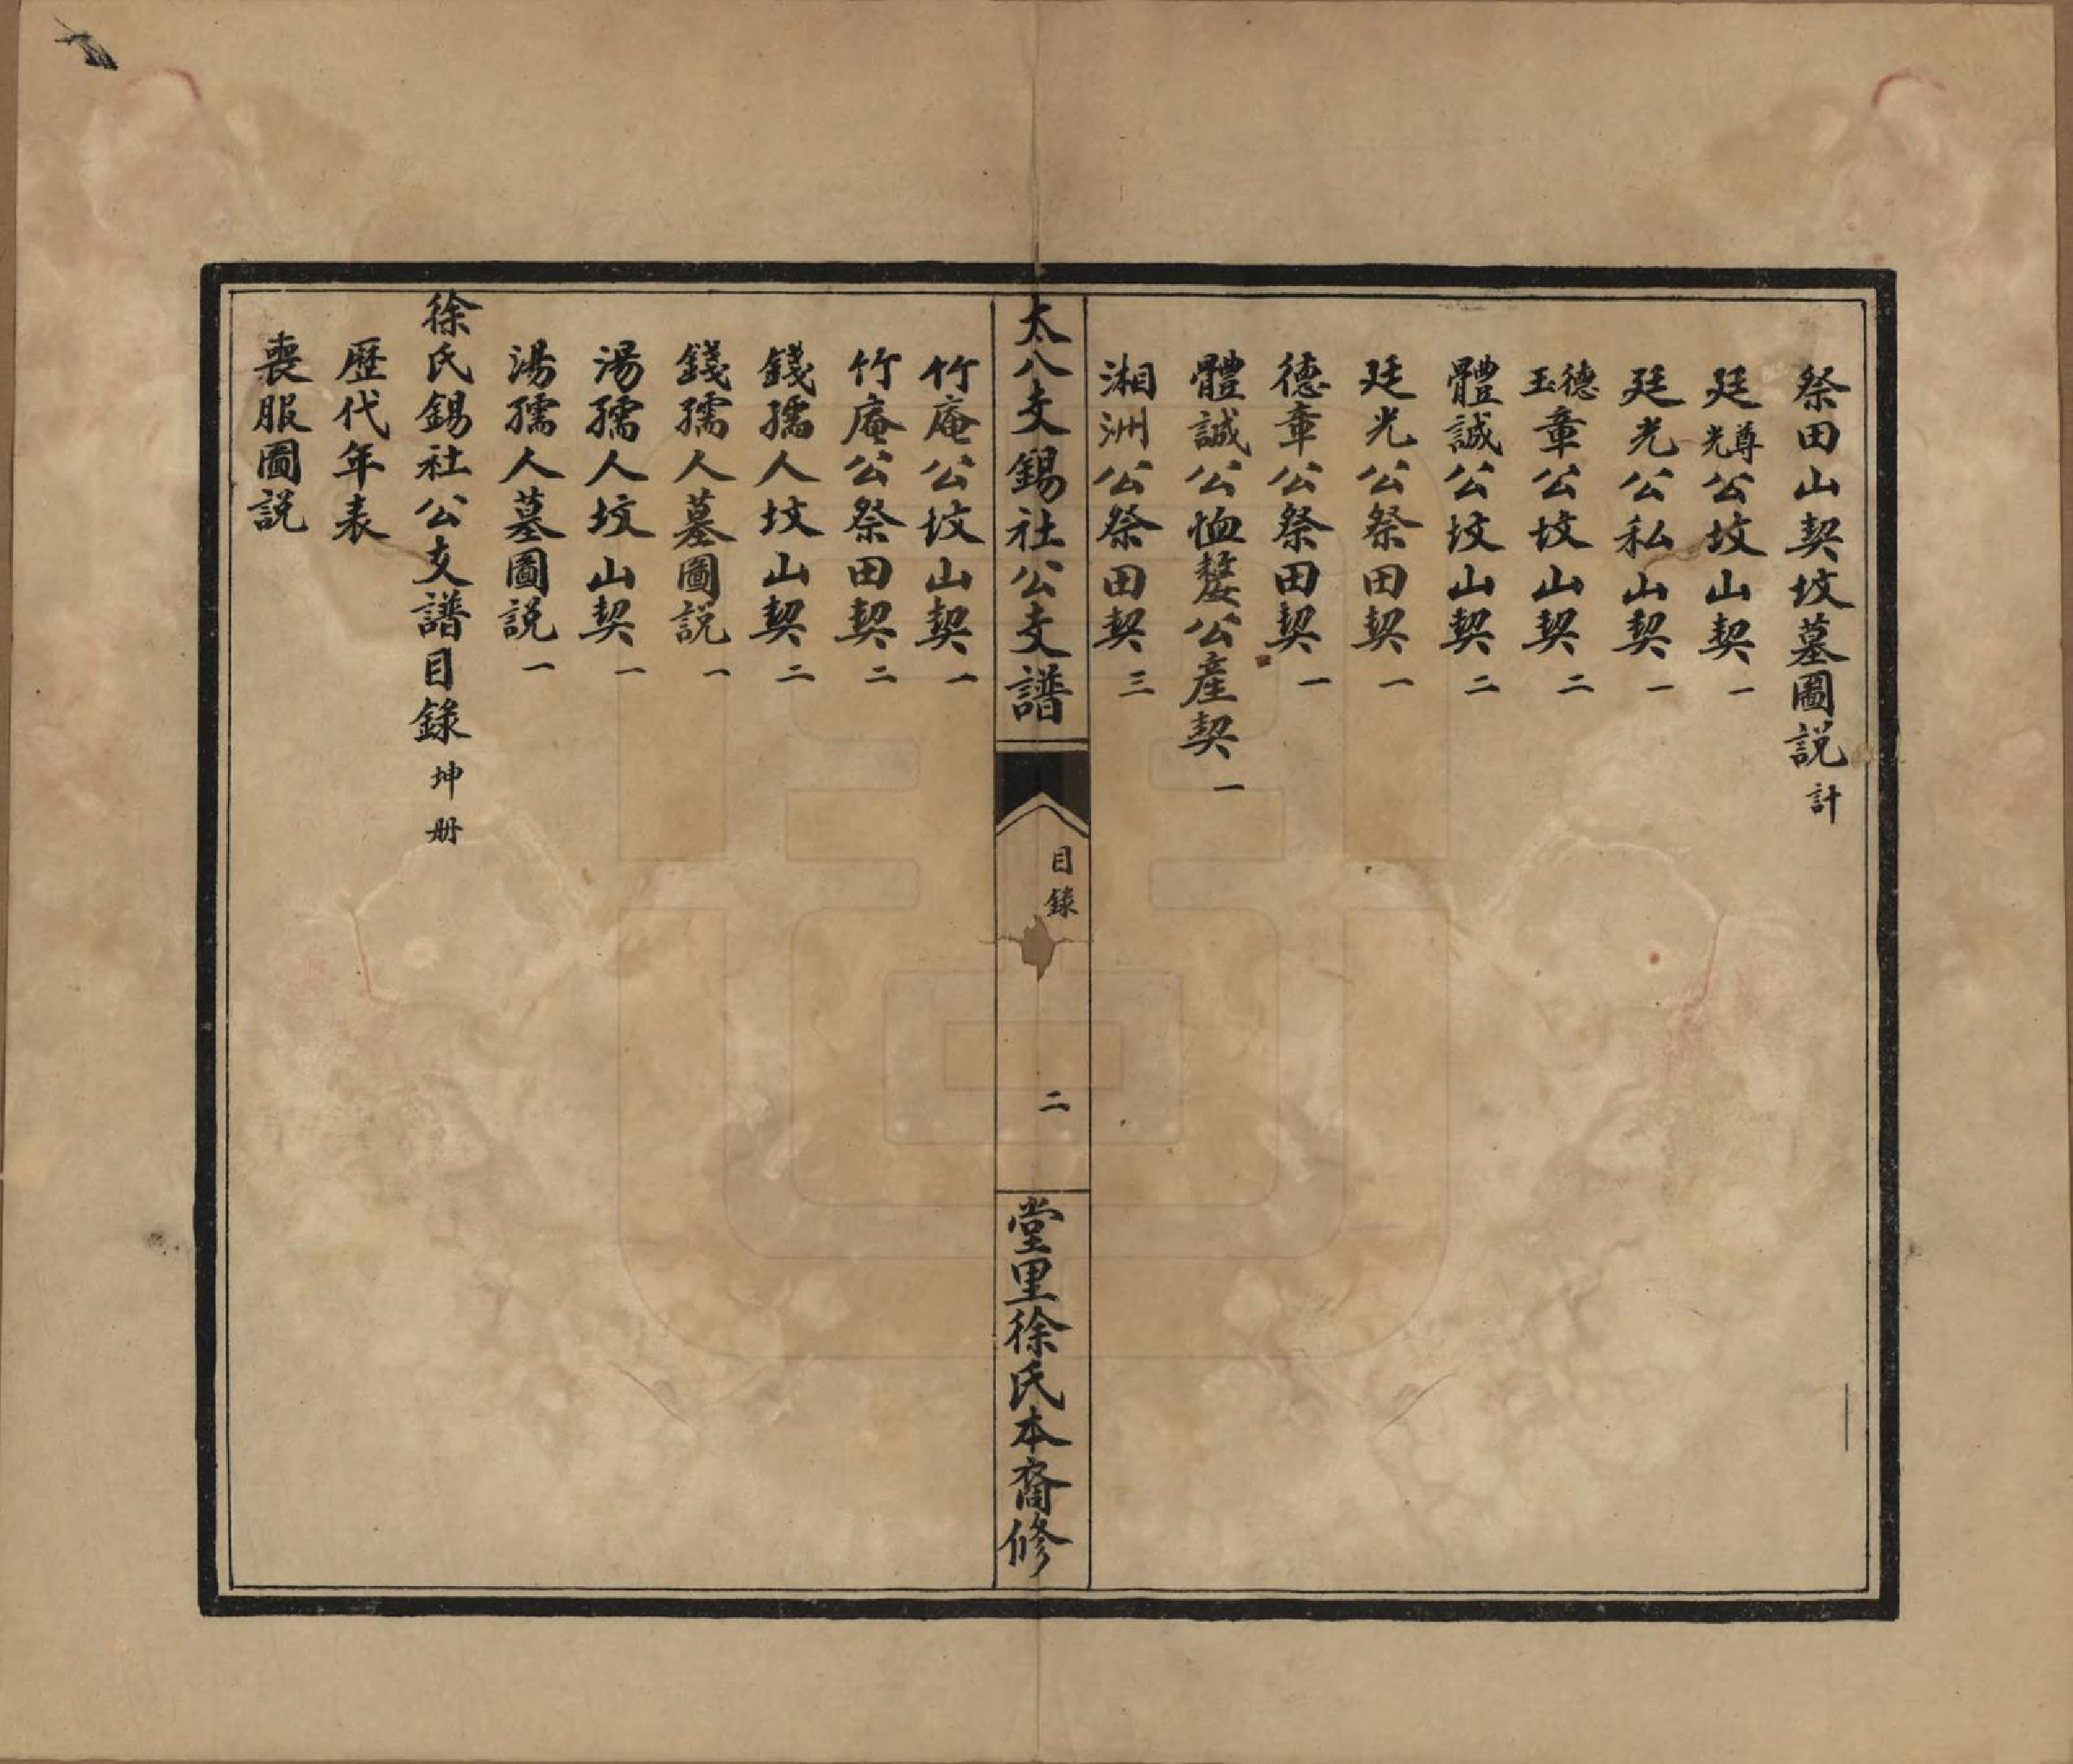 祭田山契坟墓圖説計
廷尊光公坟山契一
廷光公私山契一
德玉章公坟山契二
體誠公坟山契二
廷光公祭田契一
德章公祭田契一
體誠公恤嫠公產契一
湘洲公祭田契三
太八支錫社公支譜
目錄
二
堂里徐氏本裔修
竹庵公坟山契一
竹庵公祭田契二
錢孺人坟山契二
錢孺人墓圖説一
湯孺人坟山契一
湯孺人墓圖説一
徐氏錫社公支譜目錄坤册
歷代年表
喪服圖説